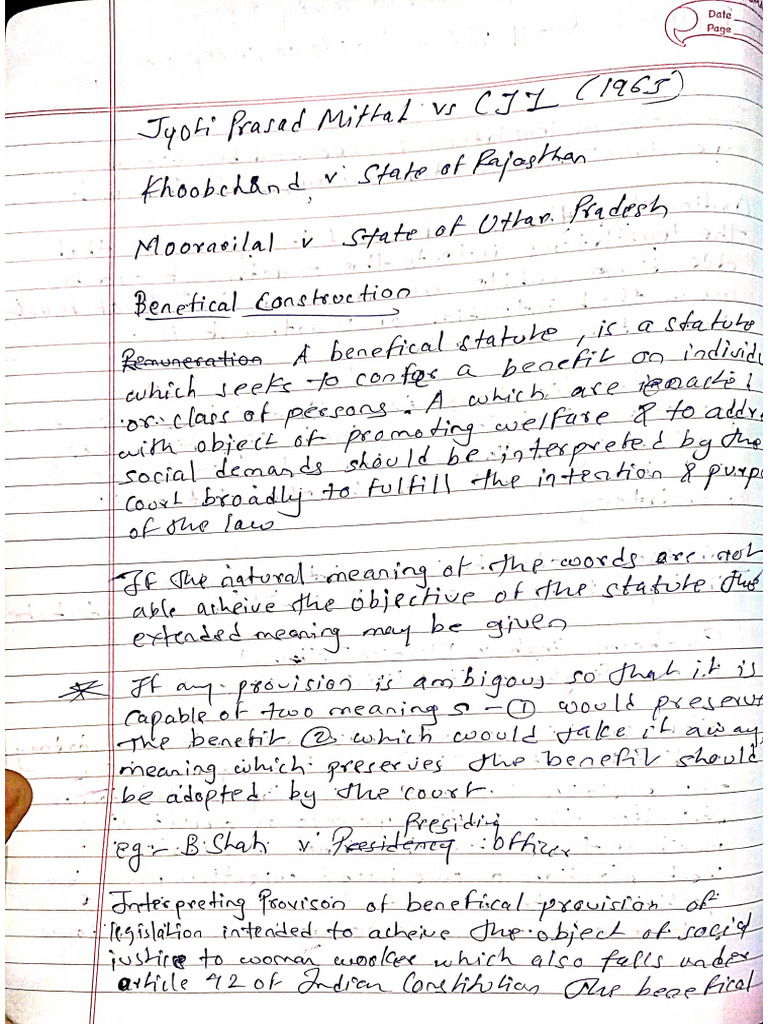 Date
Page
Jyoti Prasad Mittal vs CJI (1965)
Khoobchand v State of Rajasthan
Mooraoilal v State of Uttar Pradesh
Benefical Construction
Remuneration A benefical statute, is a statute
which seeks to confer a benefit on individu
or class of persons. A which are
with object of promoting welfare & to addr
social demands should be interpreted by the
court broadly to fulfill the intention & purp
of the law
If the natural meaning of the words are not
able acheive the objective of the statute the
extended meaning may be given
If any provision is ambigous so that it is
capable of two meanings - ① would preserve
the benefit ② which would take it away,
meaning which preserves the benefit should
be adopted by the court.
Presiding
eg:- B. Shah v Presidency Officer
Interpreting Provison of benefical provision of
legislation intended to acheive the object of social
justice to woman wooker which also falls under
article 42 of Indian Constitution the benefical